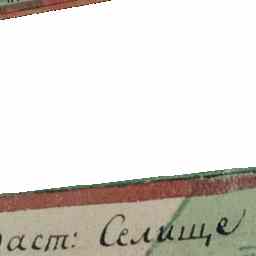 даст: Селище